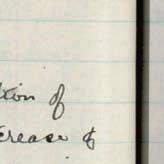 tion of
crease of